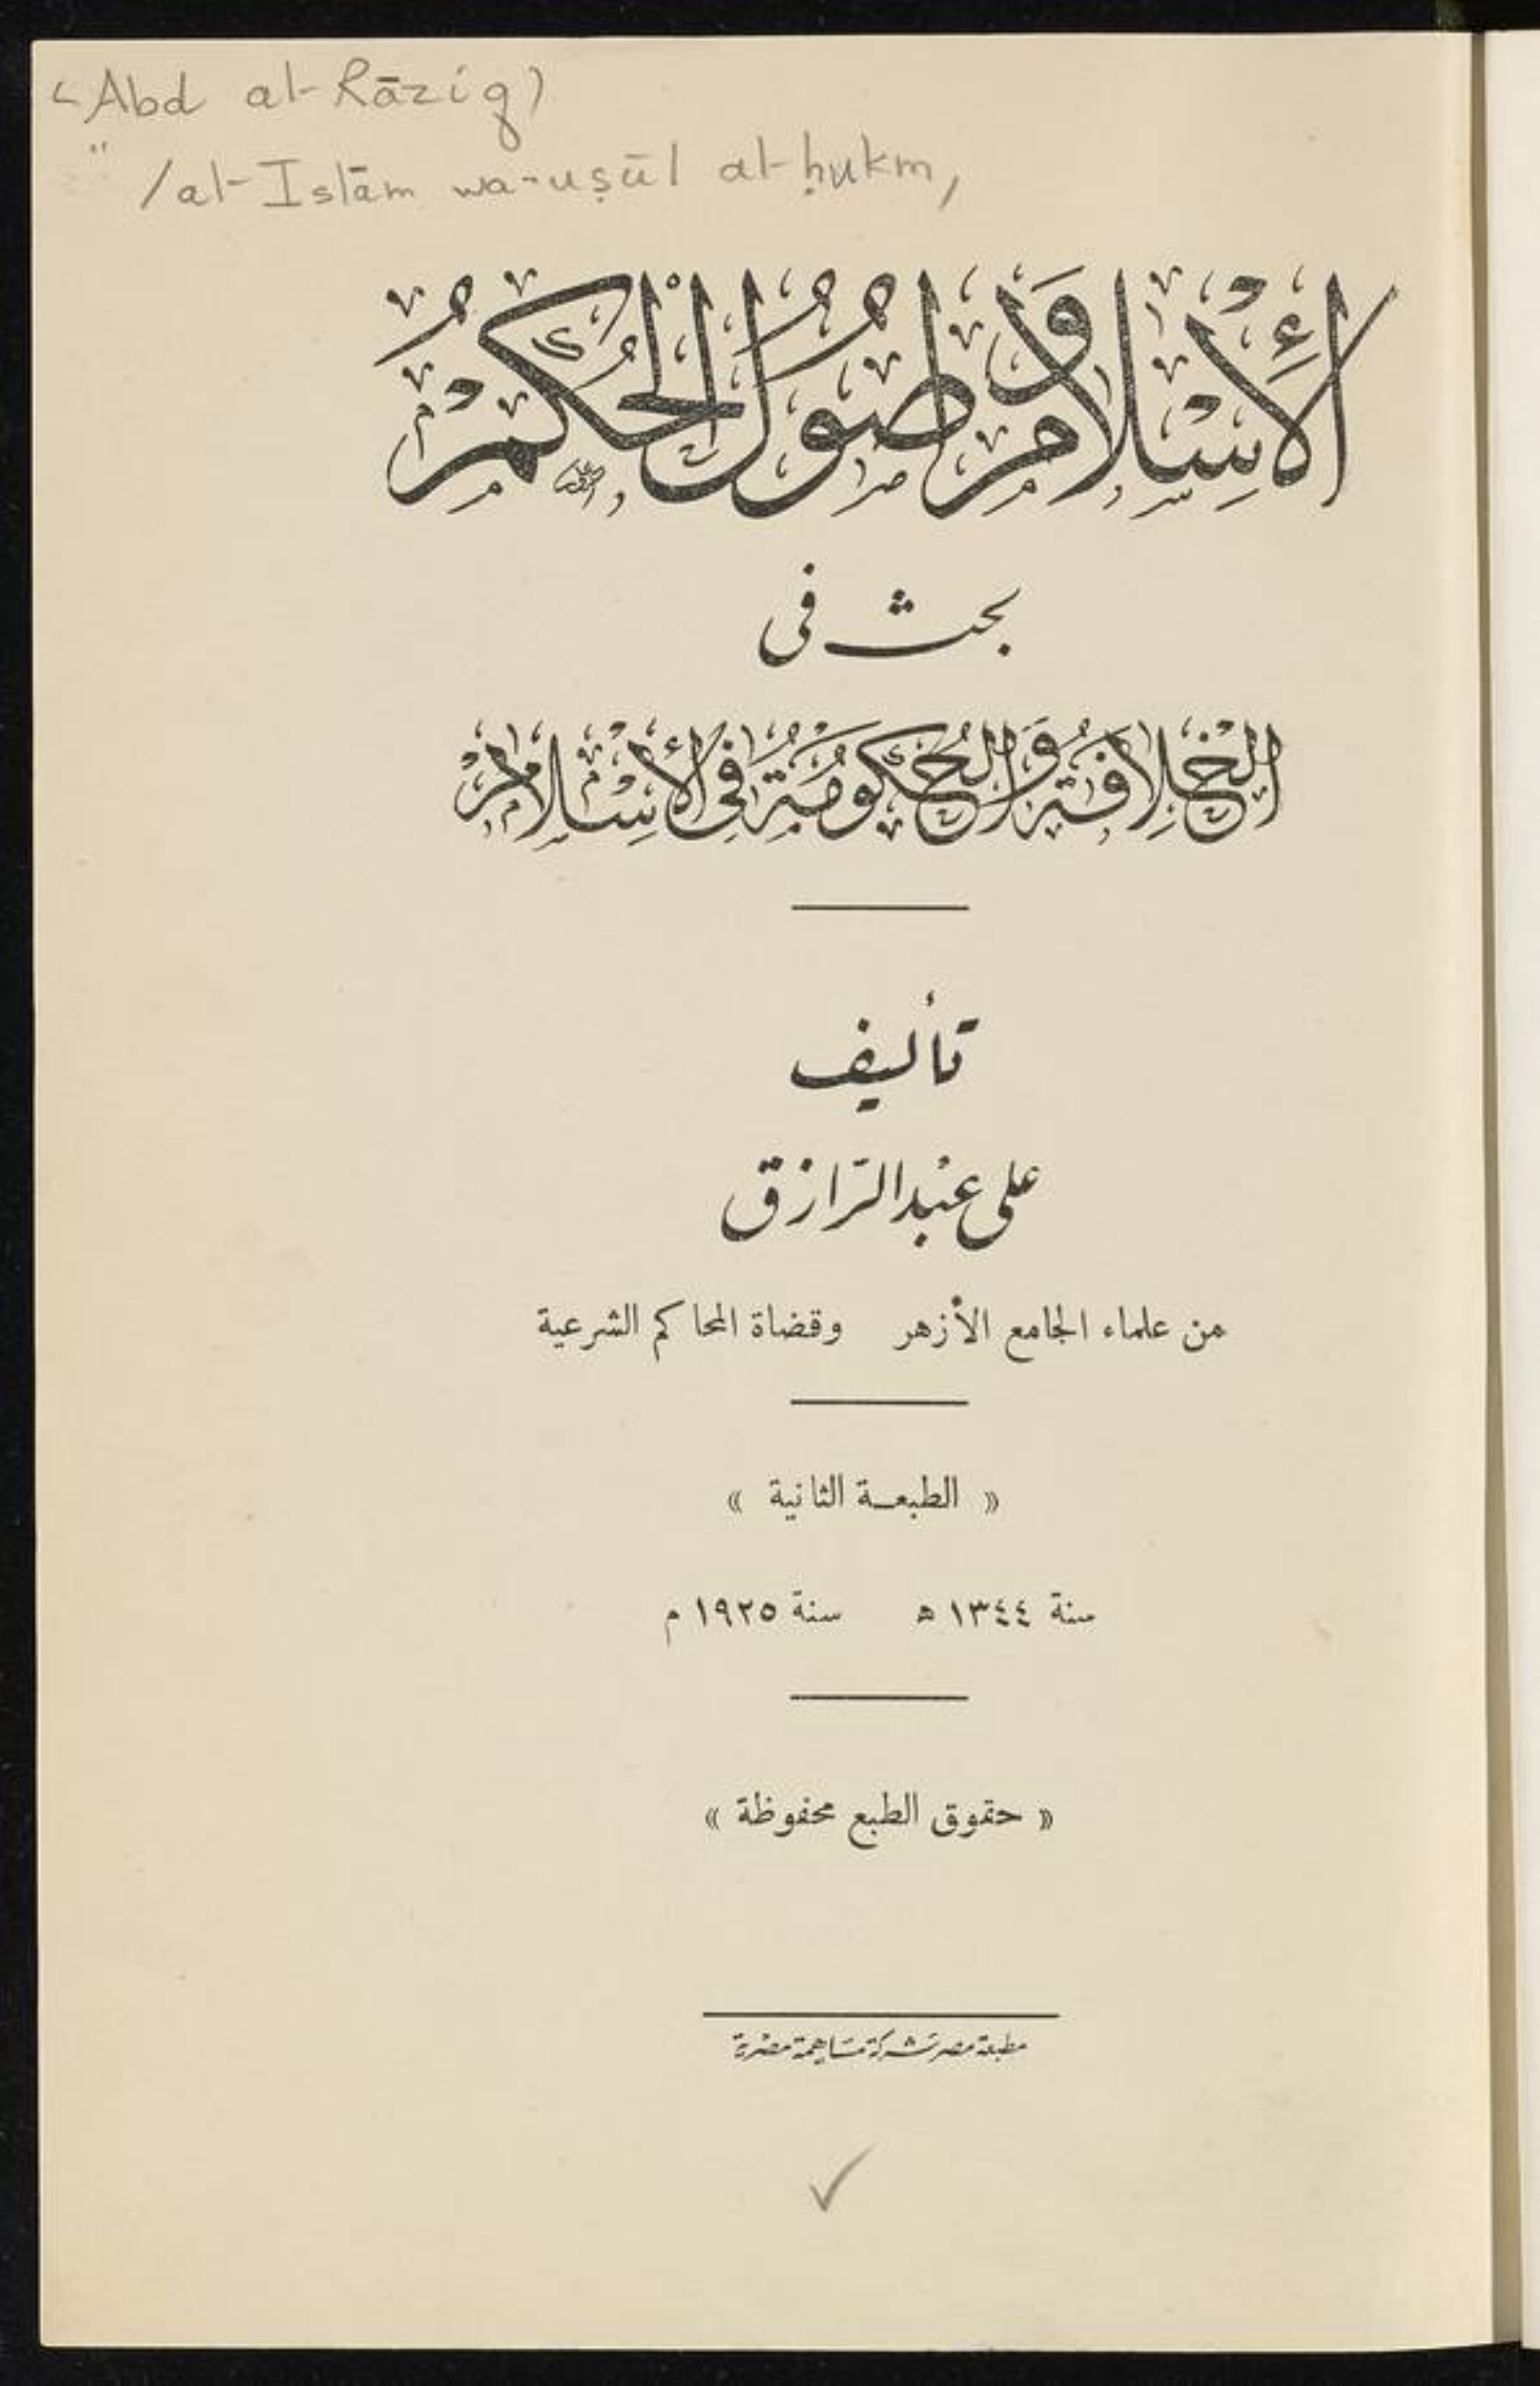 (Abd al-Rāziq)
" /al-Islām wa-uṣūl al-ḥukm,
الإسلام وأصول الحكم
بحث فى
الخلافة والحكومة في الإسلام
تأليف
على عبد الرازق
من علماء الجامع الأزهر وقضاة المحاكم الشرعية
« الطبعة الثانية »
سنة ١٣٤٤ ه سنة ١٩٢٥ م
« حقوق الطبع محفوظة »
مطبعة مصر شركة مساهمة مصرية